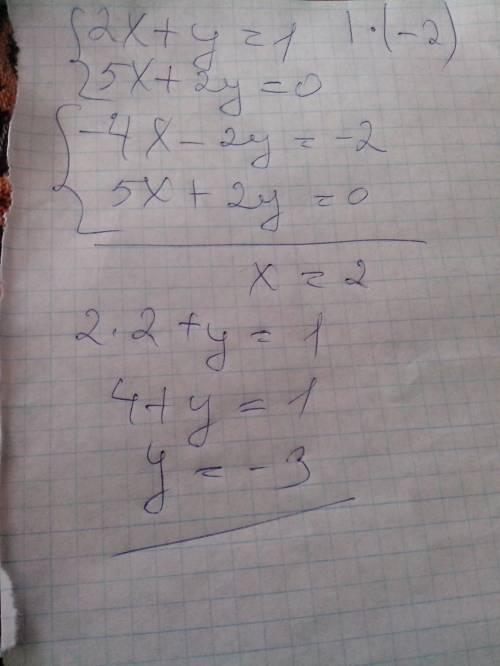 {2x + y = 1 | · (-2)
{5x + 2y = 0
{-4x - 2y = -2
{5x + 2y = 0
x = 2
2 · 2 + y = 1
4 + y = 1
y = -3